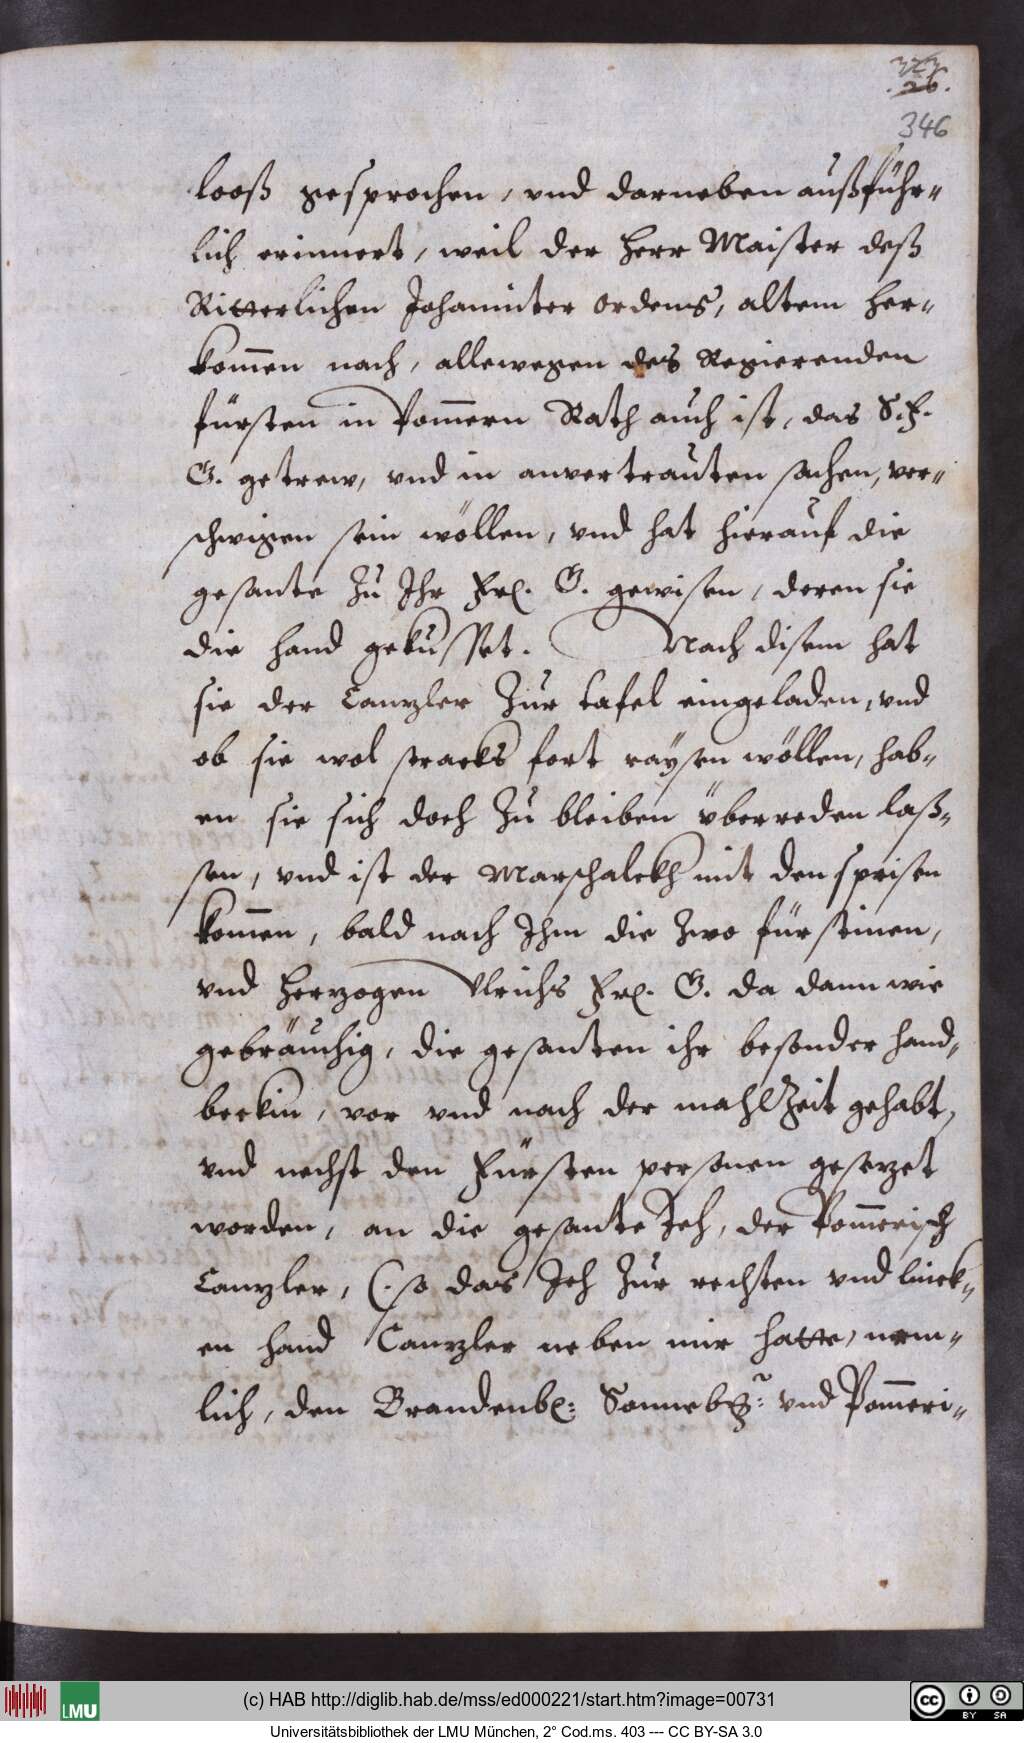 323
26.
346
looß gesprochen, vnd darneben außführ-
lich erinnert, weil der Herr Maister deß
Ritterlichen Johaniter ordens, altem her-
kom̄en nach, allewegen des Regierenden
fürsten in Pom̄ern Rath auch ist, das S. F.
G. getrew, vnd in anvertrauten sachen, ver-
schwigen sein wöllen, vnd hat hierauf die
gesante zu Ihr Frl. G. gewisen, deren sie
die hand gekusset. Nach disem hat
sie der Canzler zur tafel eingeladen, vnd
ob sie wol stracks fort raÿsen wöllen, hab-
en sie sich doch zu bleiben überreden laß-
sen, vnd ist der Marschalckh mit den speisen
kom̄en, bald nach Ihm die zwo fürstinen,
vnd Herzogen Vlrichs Frl. G. da dann wie
gebräuchig, die gesanten ihr besonder hand-
beckin, vor vnd nach der mahlzeit gehabt,
vnd nechst den Fürsten personen gesezet
worden, an die gesante Ich, der Pom̄erisch
Canzler, (. so das Ich zur rechten vnd linck-
en hand Canzler neben mir hatte, nem-
lich, den Brandenb: Sonnebg: vnd Pom̄eri-
(c) HAB http://diglib.hab.de/mss/ed000221/start.htm?image=00731
LMU
cc BY SA
Universitätsbibliothek der LMU München, 2° Cod.ms. 403 --- CC BY-SA 3.0